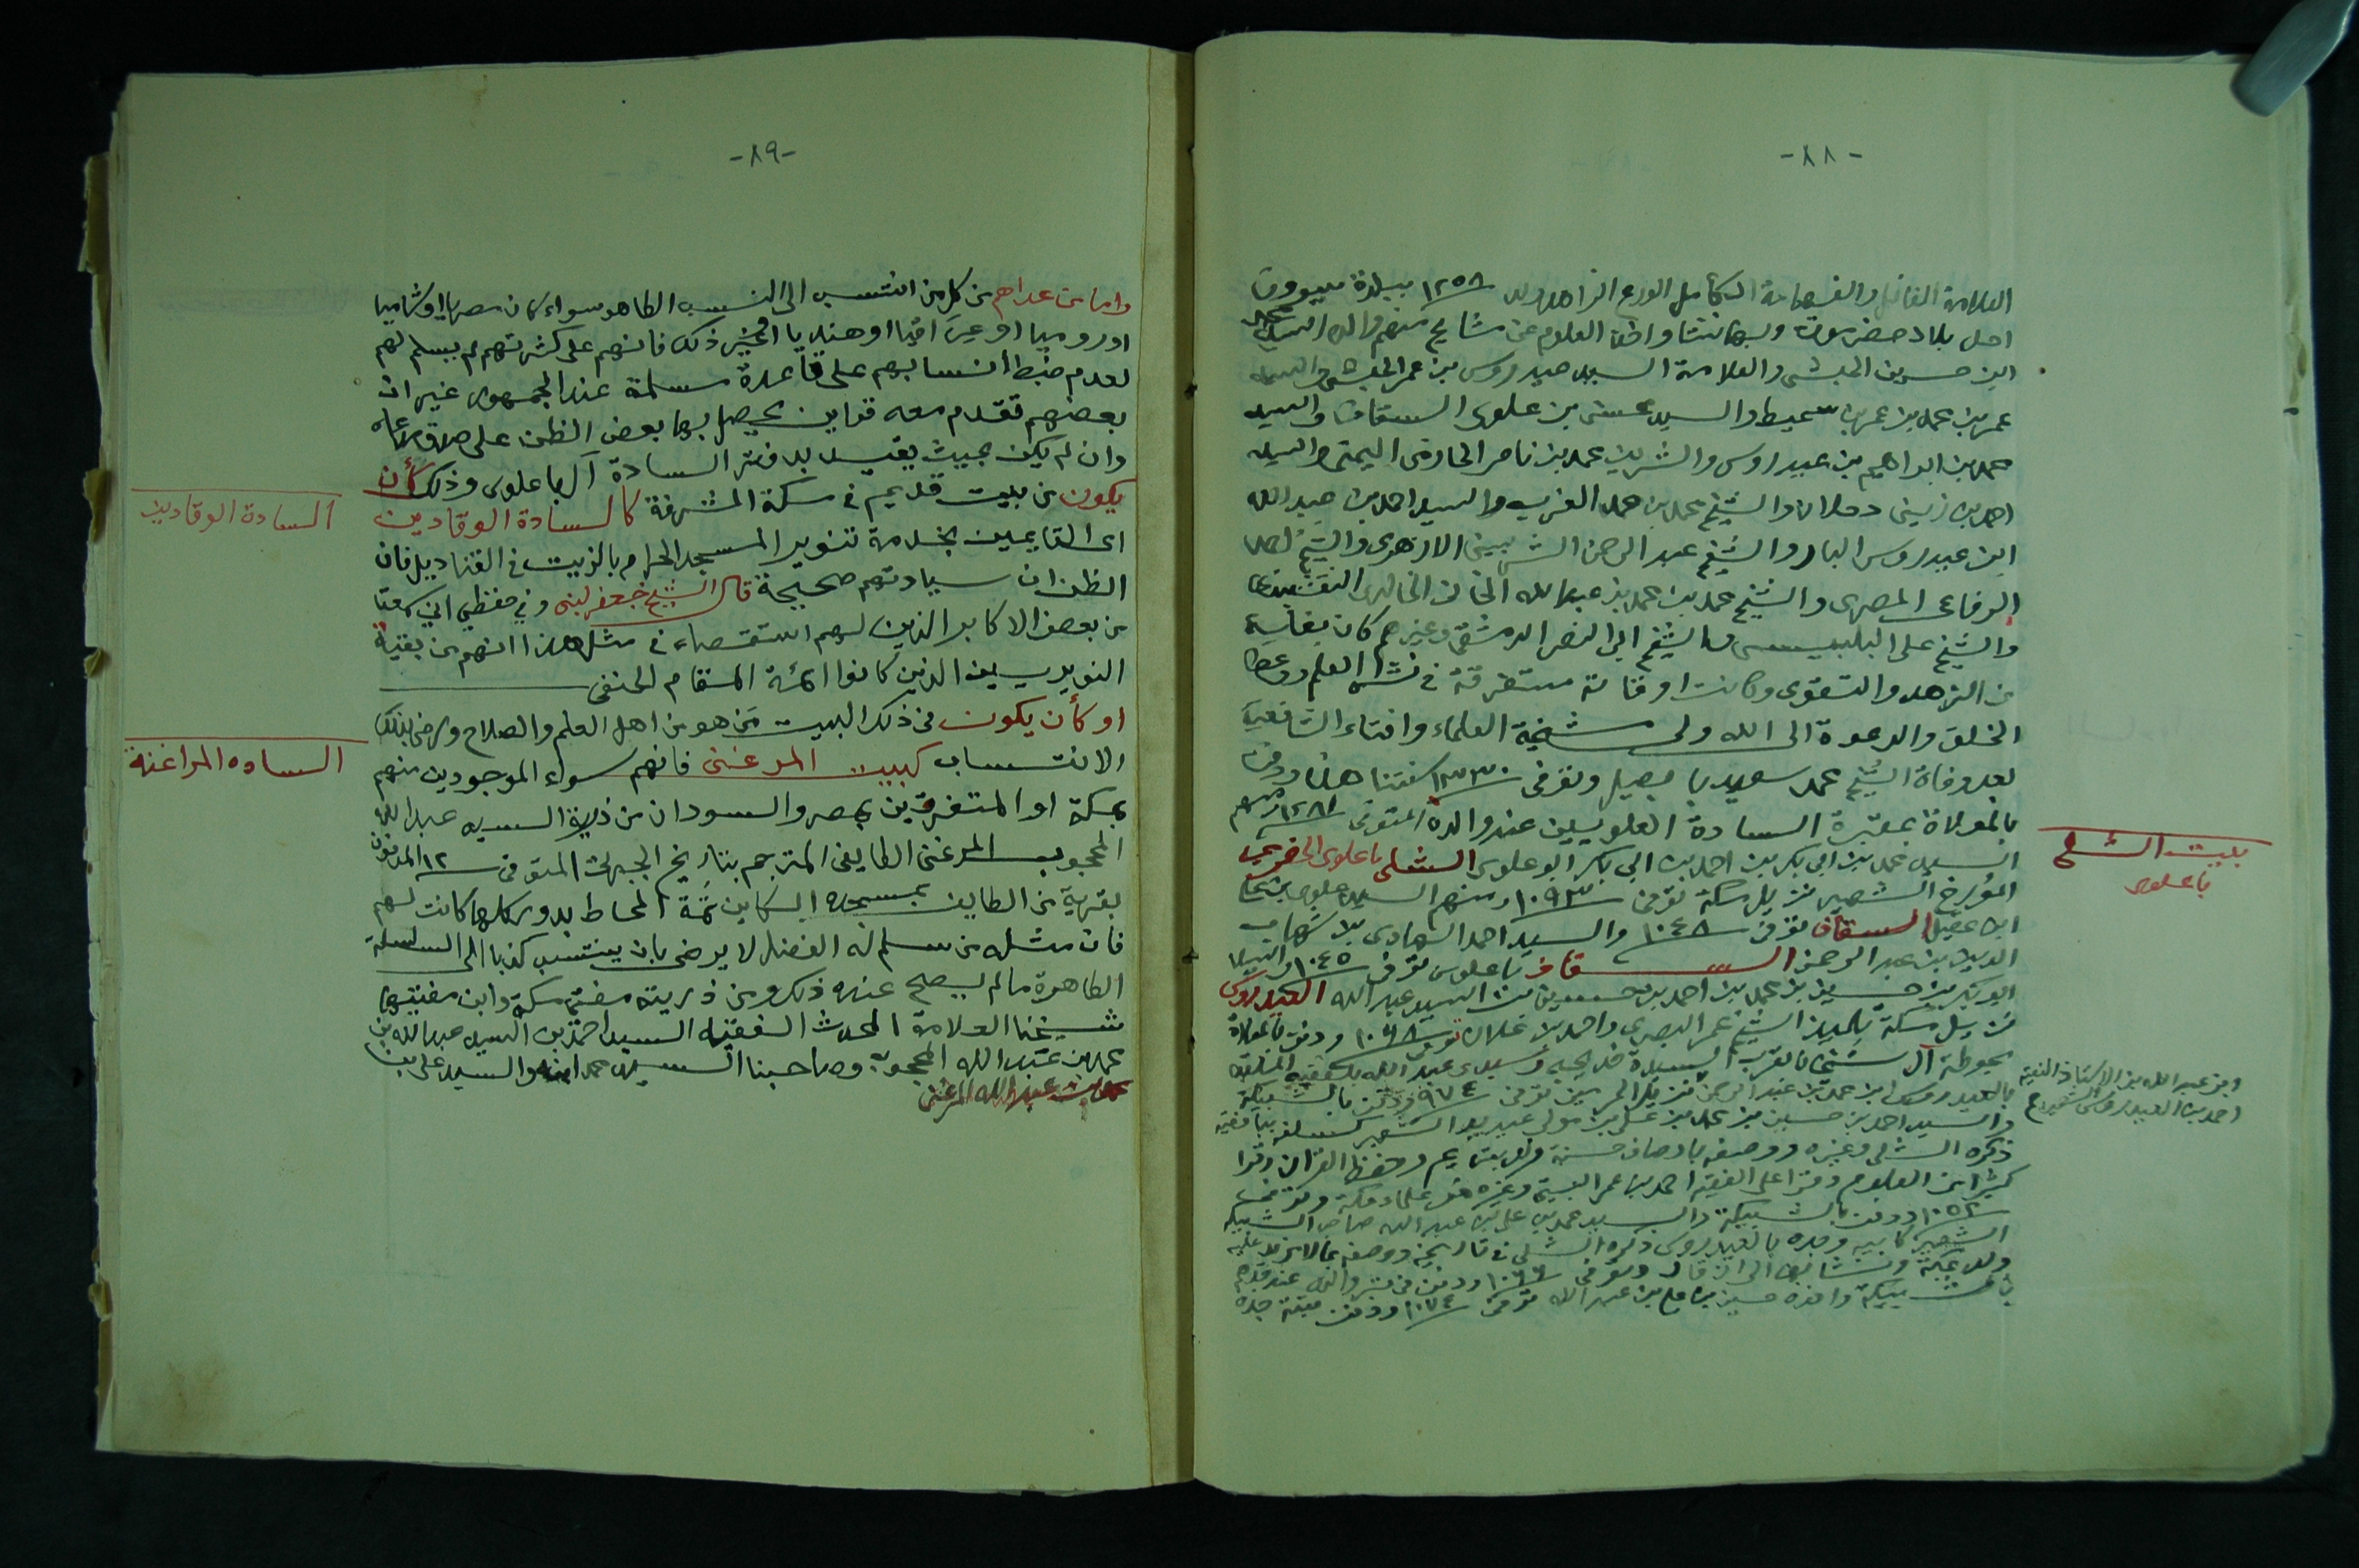 -٨٨-
العلامة الفاضل والفهامة الكامل الورع الزاهد ولد ١٢٥٨ ببلدة سيوون
احدى بلاد حضرموت وبها نشا واخذ العلوم عن مشايخ منهم والده السيد محمد
ابن حسين الحبشي والعلامة السيد عيدروس بن عمر الحبشي والسيد
عمر بن محمد بن عمر بن سميط والسيد محسن بن علوى السقاف والسيد
محمد بن ابراهيم بن عيدروس والشريف محمد بن ناصر الحازمى اليمنى والسيد
احمد بن زينى دحلان والشيخ محمد بن محمد العزب والسيد احمد بن عبد الله
ابن عيدروس البار والشيخ عبد الرحمن الشربينى الازهرى والشيخ احمد
الرفاعى المصرى والشيخ محمد بن محمد بن عبد الله الخانى الخالدى النقشبندى
والشيخ على البلبيسى والشيخ ابى النصر الدمشقى وغيرهم كان بغاية
من الزهد والتقوى وكانت اوقاته مستغرقة فى نشر العلم ووعظ
الخلق والدعوة الى الله ولى مشيخة العلماء وافتاء الشافعية
بعد وفاة الشيخ محمد سعيد بابصيل وتوفى ١٣٣٠ سنتنا هذه ودفن
بالمعلاة بمقبرة السادة العلويين عند والده المتوفى ١٢٨١ ومنهم
السيد محمد بن ابى بكر بن احمد بن ابى بكر ابو علوى الشلى باعلوى الحضرمى
المؤرخ الشهير نزيل مكة توفى ١٠٩٣ ومنهم السيد علوى بن على
ابن عقيل السقاف توفى ١٠٤٨ والسيد احمد الهادى بن شهاب
الدين بن عبد الرحمن السقاف باعلوى توفى ١٠٤٥ والسيد
ابو بكر بن حسين بن محمد بن احمد بن حسين بن السيد عبد الله العيدروس
نزيل مكة تلميذ الشيخ عمر البصرى واحمد بن علان توفى ١٠٦٨ ودفن بالمعلاة
بحوطة آل الشيخ بالقرب السيدة خديجه وسيدى عبد الله بلفقيه الملقب
بالعيدروس ابن محمد بن عبد الرحمن نزيل الحرمين توفى ٩٧٤ ودفن بالشبيكة
والسيد احمد بن حسين بن محمد بن على بن مولى عيديد الشهير كسلفه ببافقيه
ذكره الشلى وغيره ووصفه باوصاف حسنة ولد بتريم وحفظ القران وقرا
كثيرا من العلوم وقرا على الفقيه احمد بن عمر البيتى وغيره من علماء مكة وتوفى
١٠٥٢ ودفن بالشبيكة والسيد محمد بن على بن عبد الله صاحب الشبيكة
الشهير كابيه وجده بالعيدروس ذكره الشلى فى تاريخه ووصفه بما لا مزيد عليه
ولد بمكة ونشا بها الى ان قال وتوفى ١٠٦٦ ودفن فى قبر والده عند جدهم
بالشبيكة واخوه حسين بن على بن عبد الله توفى ١٠٧٤ ودفن بقبة جده
بيت الشلى
باعلوى
وبن عبد الله بن الاستاذ الفقيه
احمد بن العيدروس الشهير
-٨٩-
واما من عداهم من كل من انتسب الى النسب الطاهر سواء كان مصريا او شاميا
او روميا او عراقيا او هنديا او غير ذلك فانهم على كثرتهم لم يسلم لهم
لعدم ضبط انسابهم على قاعدة مسلمة عند الجمهور غير ان
بعضهم تقدم معه قراين يحصل بها بعض الظن على صدق مدعاه
وان لم يكن بحيث يقيد بدفتر السادة آل باعلوى وذلك كأن
يكون من بيت قديم فى مكة المشرفة كالسادة الوقادين
اى القايمين بخدمة تنوير المسجد الحرام بالزيت فى القناديل فان
الظن ان سيادتهم صحيحة قال الشيخ جعفر لبنى وفى حفظي اني سمعت
من بعض الاكابر الذين لهم استقصاء فى مثل هذا انهم من بقية
النويريين الذين كانوا ائمة المقام الحنفى
او كأن يكون فى ذلك البيت من هو من اهل العلم والصلاح ورضى بذلك
الانتساب كبيت المرغنى فانهم سواء الموجودين منهم
بمكة او المتفرقين بمصر والسودان من ذرية السيد عبد الله
المحجوب المرغنى الطايفى المترجم بتاريخ الجبرتى المتوفى ١٢ المدفون
بقرية من الطايف بمسجده الكاين ثمة المحاط بدور كلها كانت لهم
فان مثله من سلم له الفضل لا يرضى بان ينتسب كذبا الى السلسلة
الطاهرة ما لم يصح عنده ذلك ومن ذريته مفتى مكة وابن مفتيها
شيخنا العلامة المحدث الفقيه السيد احمد بن السيد عبد الله بن
محمد بن عبد الله المحجوب وصاحبنا السيد محمد ابنه والسيد على بن
محمد بن عبد الله المرغنى
السادة الوقادين
الساده المراغنة